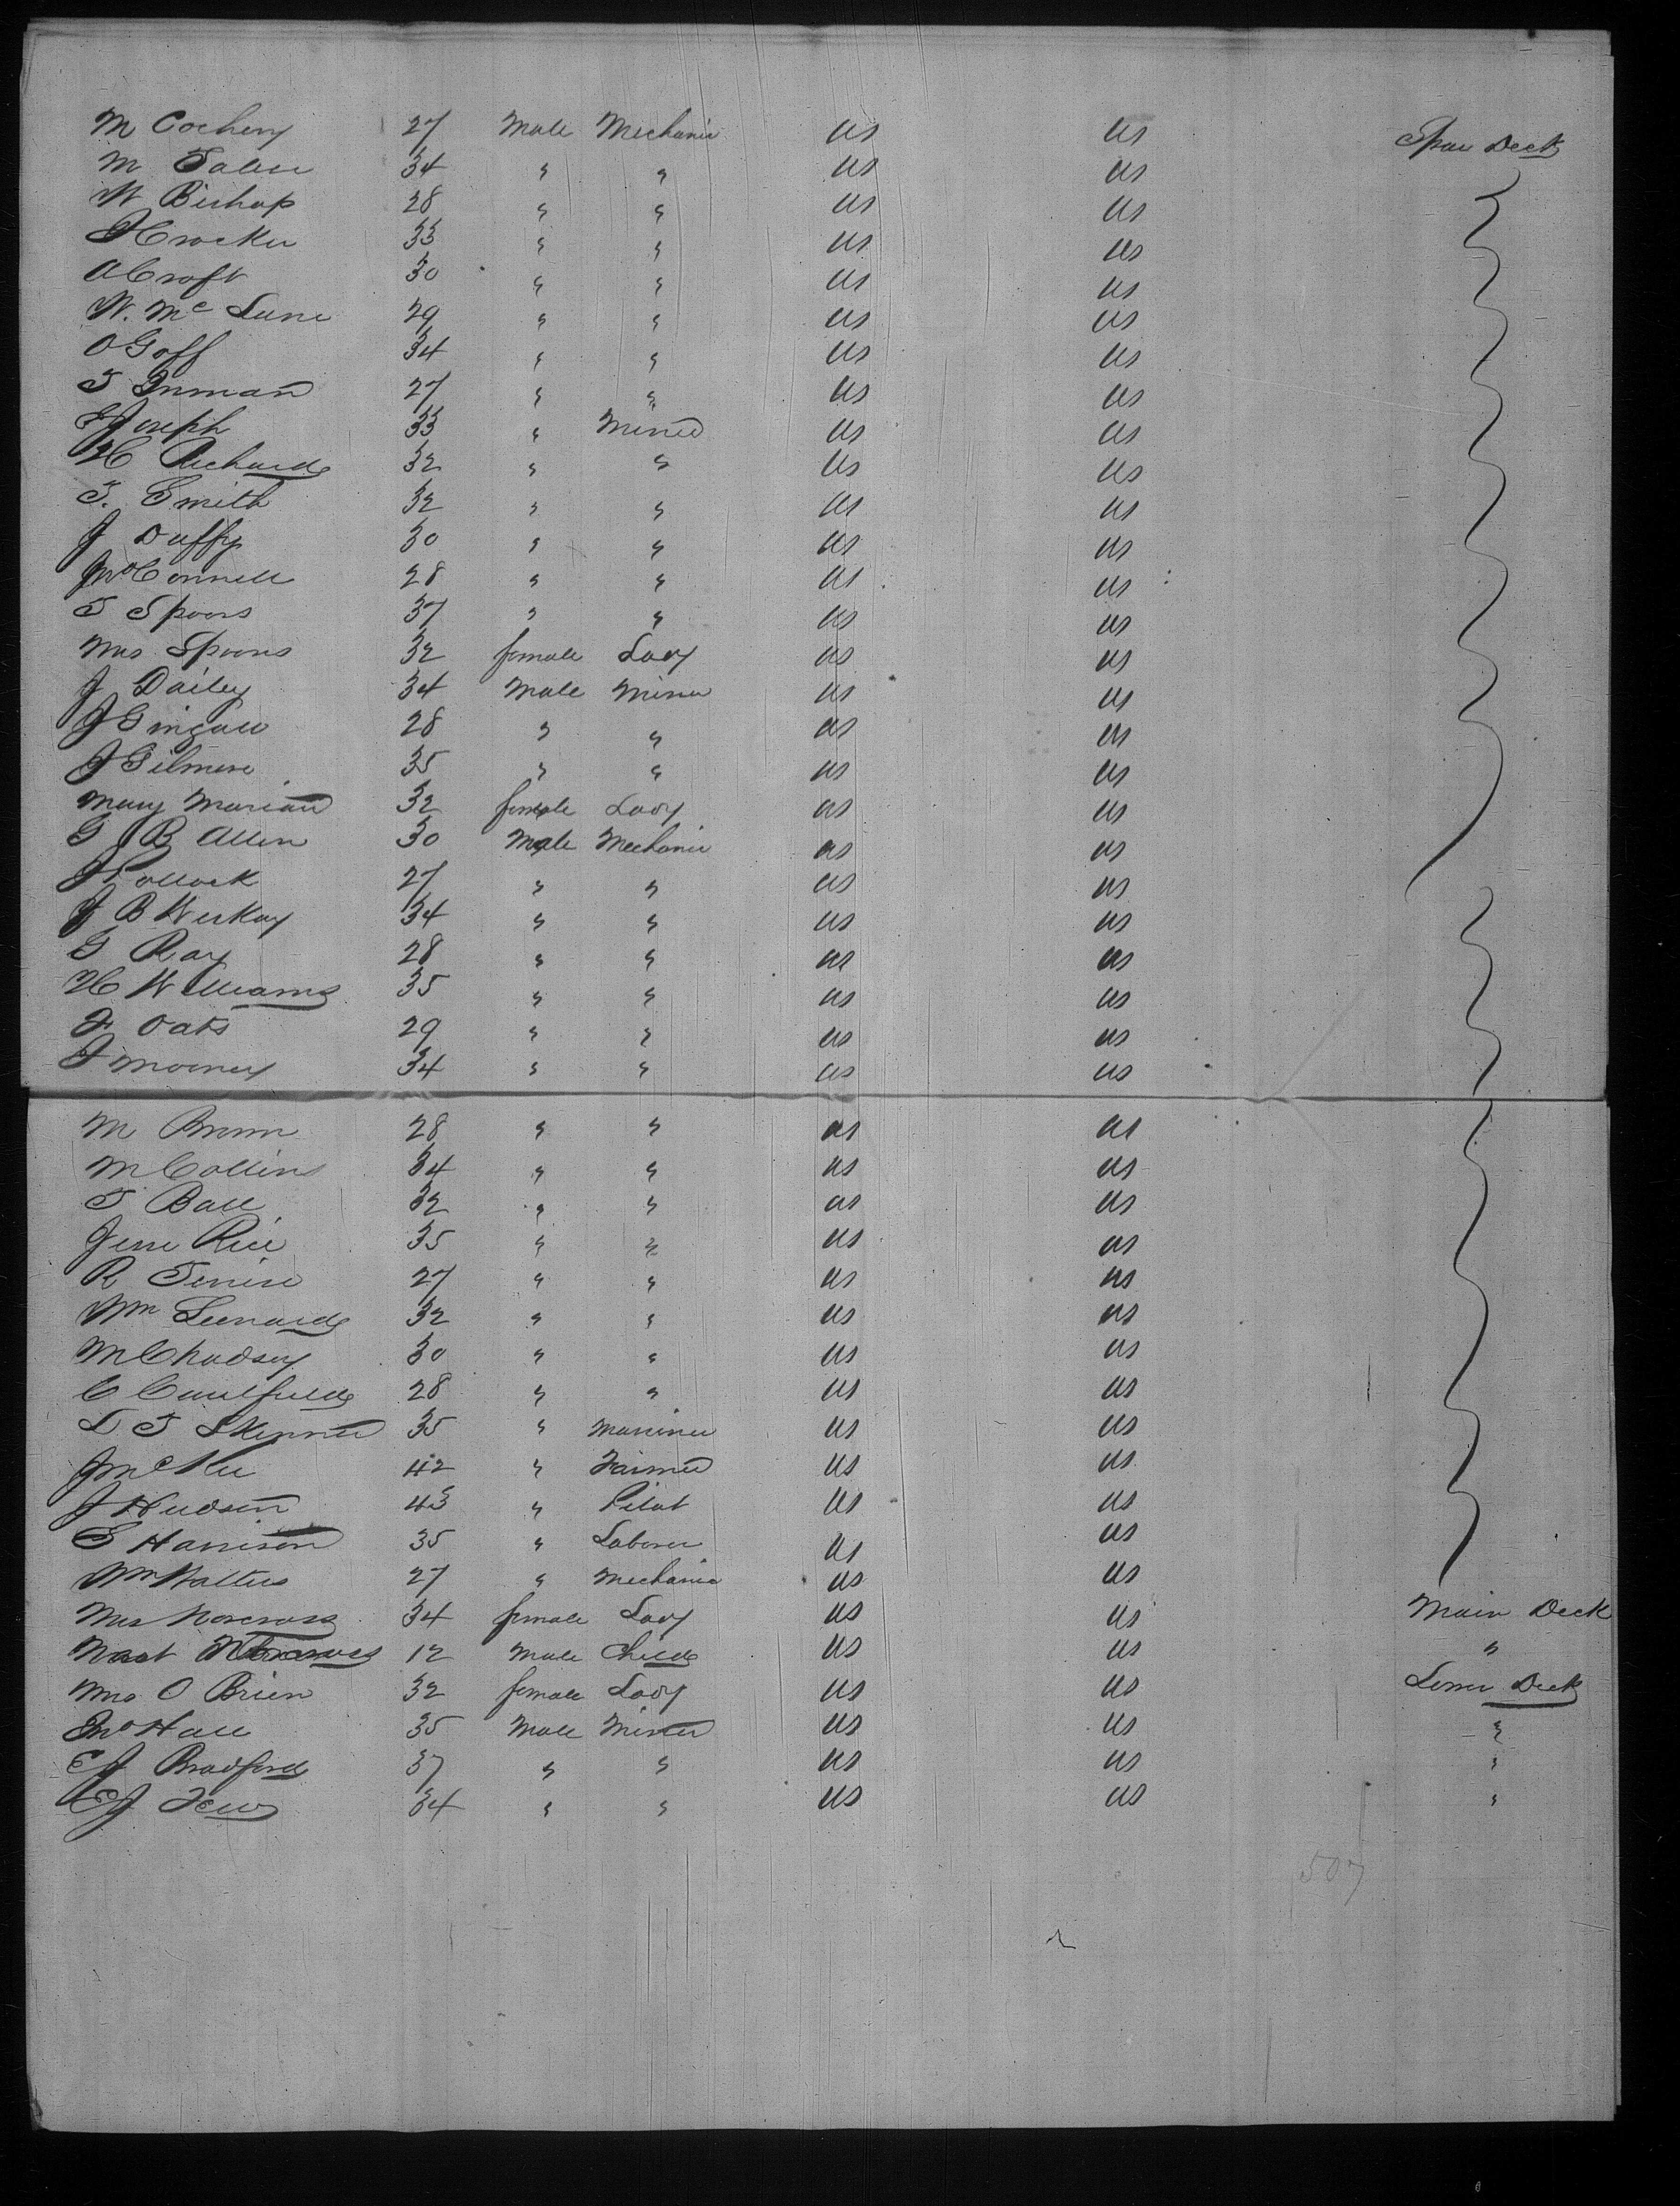 M Cochery 27 Male Mechanic US US Spar Deck
M 34 " " US US
W Bishop 28 " " US US
J Crocker 33 " " US US
A Croft 30 " " US US
W. Mc Lane 29 " " US US
O Goff 34 " " US US
T Inman 27 " " US US
J Joseph 33 " Miner US US
H Richards 32 " " US US
T. Smith 32 " " US US
J Duffy 30 " " US US
Jno Connell 28 " " US US
T Spoors 37 " " US US
Mrs Spoors 32 female Lady US US
J Dailey 34 Male Miner US US
J 28 " " US US
J Gilmore 35 " " US US
Mary Marian 32 female Lady US US
G B Allen 30 Male Mechanic US US
J Pollock 27 " " US US
J B 34 " " US US
G Ray 28 " " US US
H Williams 35 " " US US
F Oats 29 " " US US
J Mooney 34 " " US US
M Brown 28 " " US US
M Collins 34 " " US US
T Ball 32 " " US US
Jesse Rice 35 " " US US
R 27 " " US US
Wm Leonards 32 " " US US
M Chadsey 30 " " US US
C Caulfield 28 " " US US
L T Skinner 35 " Mariner US US
J McKee 42 " Farmer US US
J Hudson 43 " Pilot US US
S Harrison 35 " Laborer US US
Wm Walters 27 " Mechanic US US
Mrs Norcross 34 female Lady US US Main Deck
Mast Norcross 12 Male Child US US "
Mrs O Brien 32 female Lady US US Lower Deck
Jno Hall 35 Male Miner US US "
E J Bradford 37 " " US US "
E J Few 34 " " US US "
507